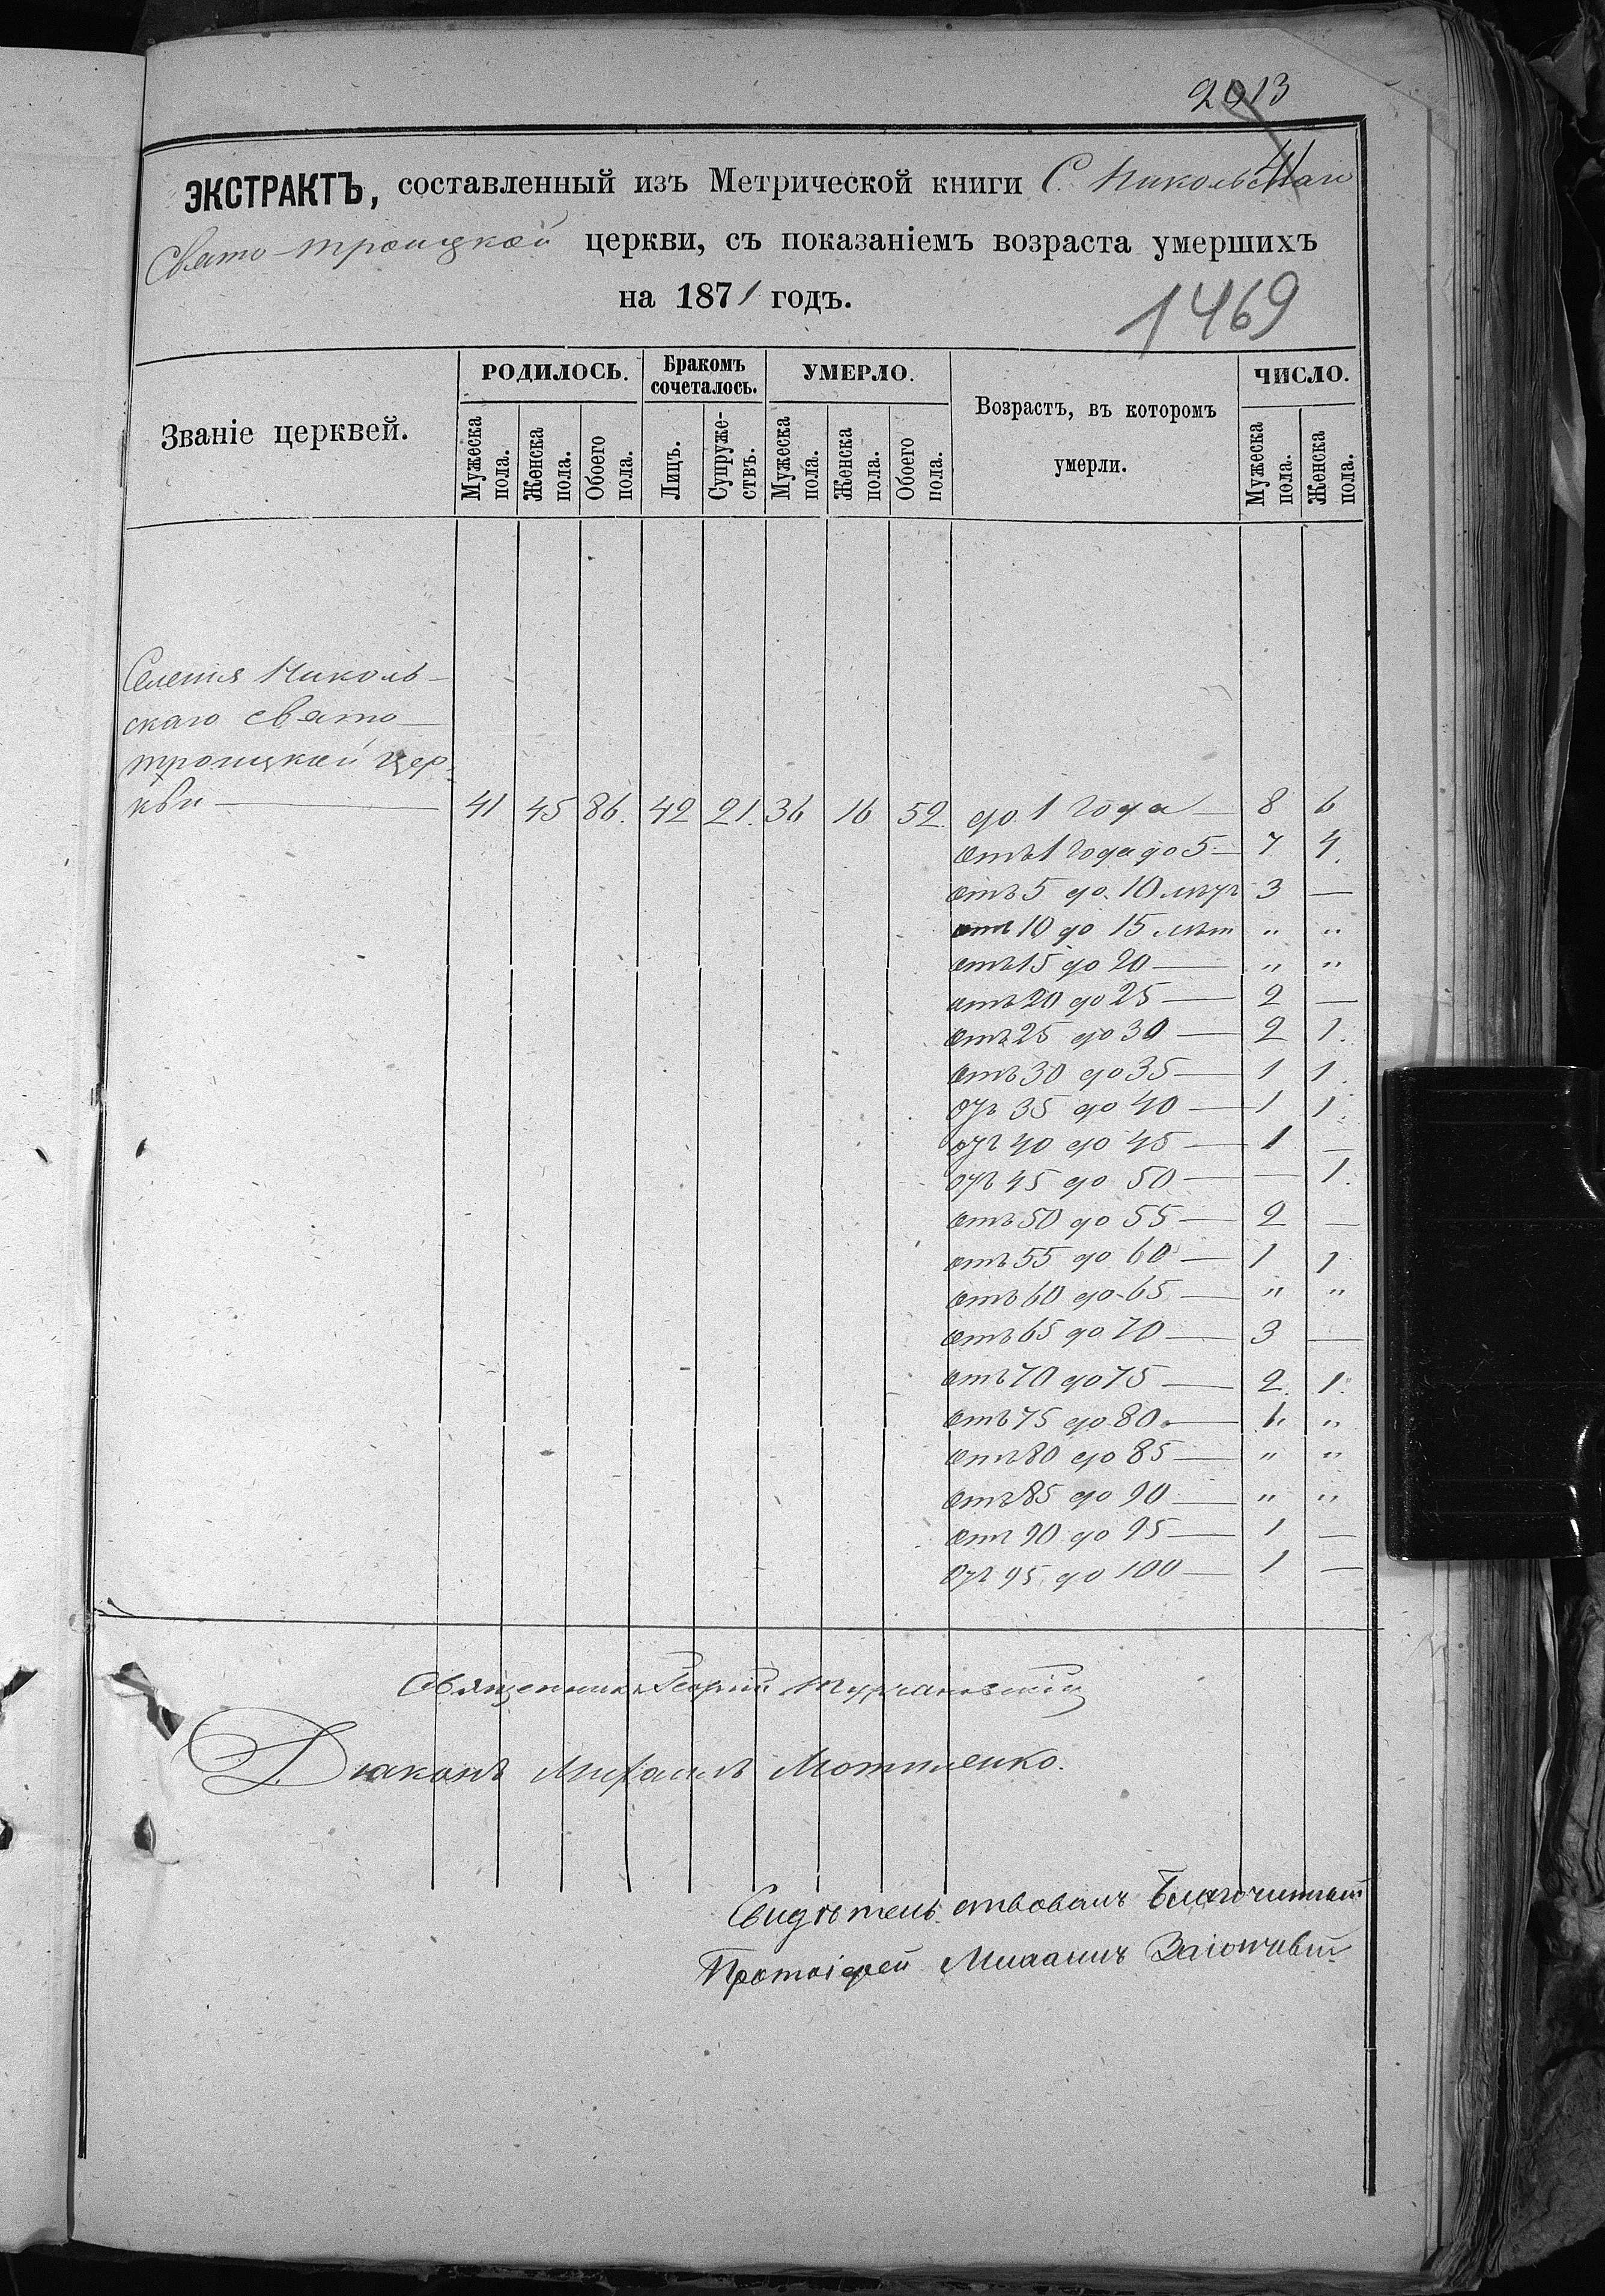 2013
41
ЭКСТРАКТЪ, составленный изъ Метрической книги С. Никольскаго
Свято-троицкой церкви, съ показаніемъ возраста умершихъ
на 1871 годъ.
1469
Званіе церквей.
РОДИЛОСЬ.
Бракомъ сочеталось.
УМЕРЛО.
Возрастъ, въ которомъ умерли.
ЧИСЛО.
Мужеска пола.
Женска пола.
Обоего пола.
Лицъ.
Супруже-ствъ.
Мужеска пола.
Женска пола.
Обоего пола.
Мужеска пола.
Женска пола.
Селенія Николь-
скаго свято-
троицкой цер-
кви — 41 45 86. 42 21. 36 16 52. до 1 года — 8 6
отъ 1 года до 5 — 7 4.
отъ 5 до 10 лѣтъ 3 —
отъ 10 до 15 лѣт „ „
отъ 15 до 20 — „ „
отъ 20 до 25 — 2 —
отъ 25 до 30 — 2 1.
отъ 30 до 35 — 1 1.
отъ 35 до 40 — 1 1.
отъ 40 до 45 — 1 —
отъ 45 до 50 — — 1.
отъ 50 до 55 — 2 —
отъ 55 до 60 — 1 1
отъ 60 до 65 — „ „
отъ 65 до 70 — 3 —
отъ 70 до 75 — 2. 1.
отъ 75 до 80 — 1. „
отъ 80 до 85 — „ „
отъ 85 до 90 — „ „
отъ 90 до 95 — 1 —
отъ 95 до 100 — 1 —
Священникъ Георгій
Діаконъ Михаилъ
Свидѣтельствовалъ Благочинный
Протоіерей